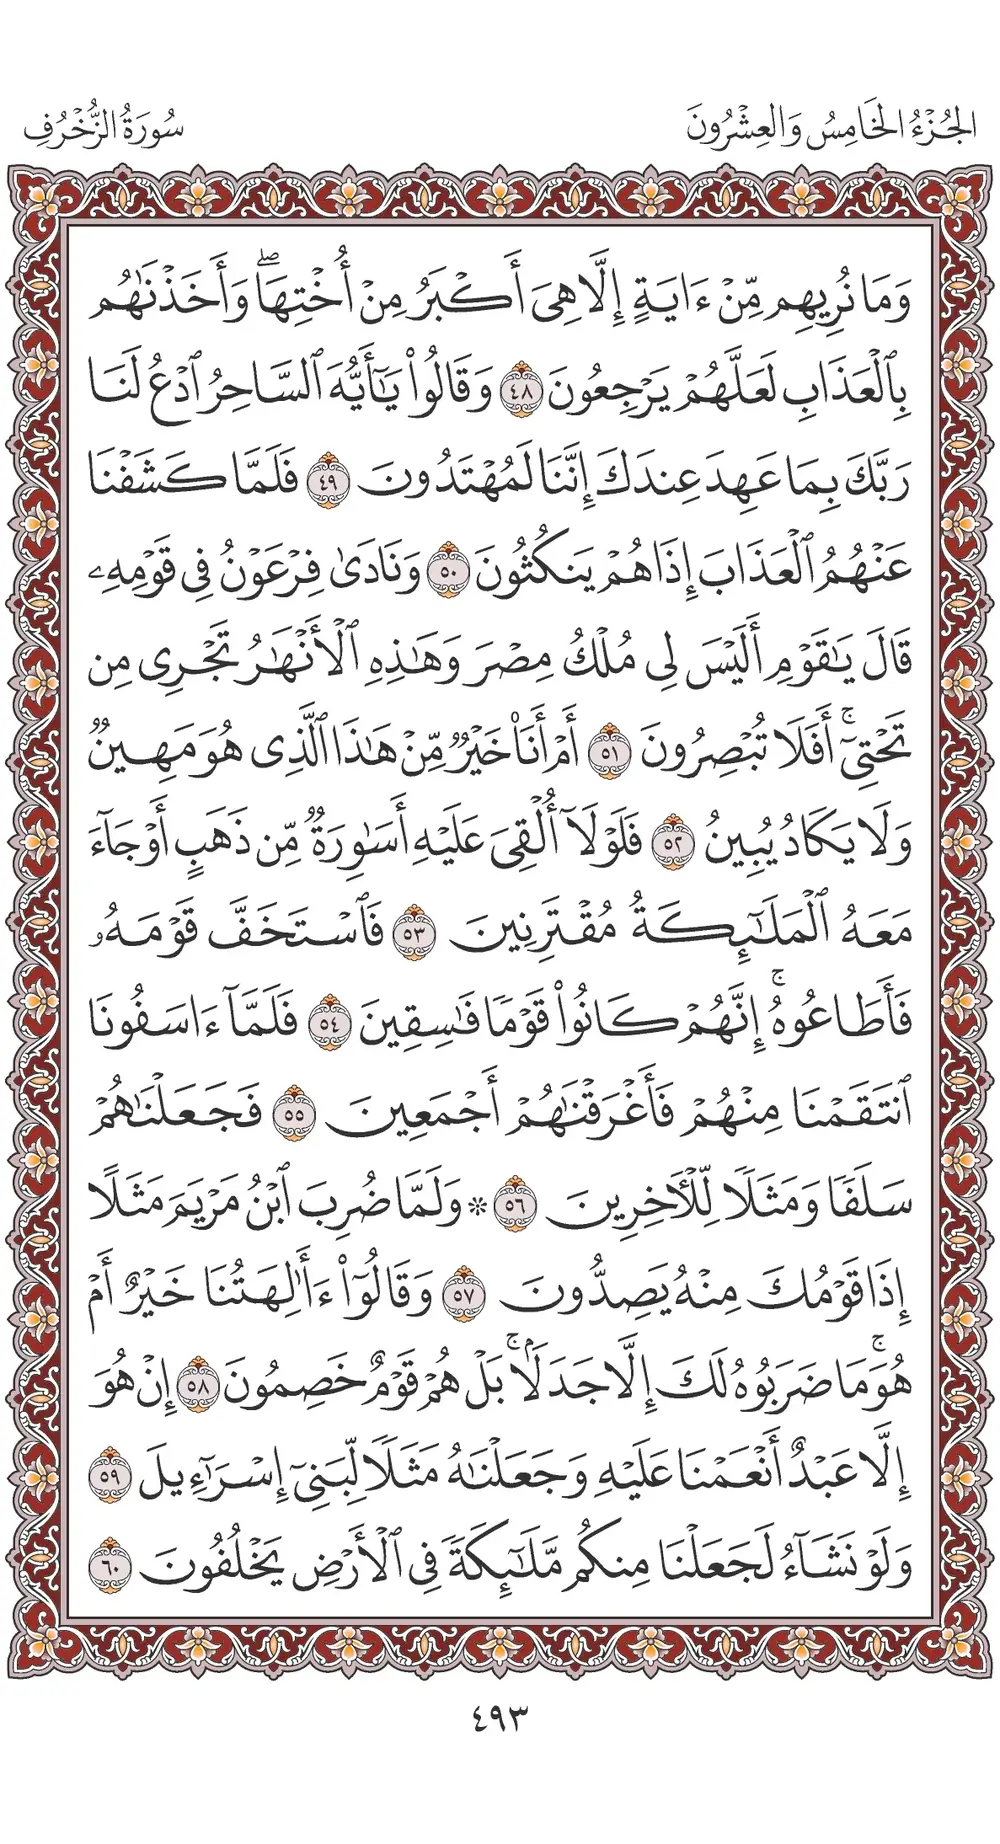 الجُزْءُ الخَامِسُ وَالعِشْرُونَ
سُورَةُ الزُّخْرُفِ
وَمَا نُرِيهِم مِّنْ ءَايَةٍ إِلَّا هِىَ أَكْبَرُ مِنْ أُخْتِهَاۖ وَأَخَذْنَٰهُم
بِٱلْعَذَابِ لَعَلَّهُمْ يَرْجِعُونَ ٤٨ وَقَالُوا۟ يَٰٓأَيُّهَ ٱلسَّاحِرُ ٱدْعُ لَنَا
رَبَّكَ بِمَا عَهِدَ عِندَكَ إِنَّنَا لَمُهْتَدُونَ ٤٩ فَلَمَّا كَشَفْنَا
عَنْهُمُ ٱلْعَذَابَ إِذَا هُمْ يَنكُثُونَ ٥٠ وَنَادَىٰ فِرْعَوْنُ فِى قَوْمِهِۦ
قَالَ يَٰقَوْمِ أَلَيْسَ لِى مُلْكُ مِصْرَ وَهَٰذِهِ ٱلْأَنْهَٰرُ تَجْرِى مِن
تَحْتِىٓۚ أَفَلَا تُبْصِرُونَ ٥١ أَمْ أَنَا۠ خَيْرٌ مِّنْ هَٰذَا ٱلَّذِى هُوَ مَهِينٌ
وَلَا يَكَادُ يُبِينُ ٥٢ فَلَوْلَآ أُلْقِىَ عَلَيْهِ أَسْوِرَةٌ مِّن ذَهَبٍ أَوْ جَآءَ
مَعَهُ ٱلْمَلَٰٓئِكَةُ مُقْتَرِنِينَ ٥٣ فَٱسْتَخَفَّ قَوْمَهُۥ
فَأَطَاعُوهُۚ إِنَّهُمْ كَانُوا۟ قَوْمًا فَٰسِقِينَ ٥٤ فَلَمَّآ ءَاسَفُونَا
ٱنتَقَمْنَا مِنْهُمْ فَأَغْرَقْنَٰهُمْ أَجْمَعِينَ ٥٥ فَجَعَلْنَٰهُمْ
سَلَفًا وَمَثَلًا لِّلْأَخِرِينَ ٥٦ ۞ وَلَمَّا ضُرِبَ ٱبْنُ مَرْيَمَ مَثَلًا
إِذَا قَوْمُكَ مِنْهُ يَصِدُّونَ ٥٧ وَقَالُوٓا۟ ءَأَٰلِهَتُنَا خَيْرٌ أَمْ
هُوَۚ مَا ضَرَبُوهُ لَكَ إِلَّا جَدَلًۢاۚ بَلْ هُمْ قَوْمٌ خَصِمُونَ ٥٨ إِنْ هُوَ
إِلَّا عَبْدٌ أَنْعَمْنَا عَلَيْهِ وَجَعَلْنَٰهُ مَثَلًا لِّبَنِىٓ إِسْرَٰٓءِيلَ ٥٩
وَلَوْ نَشَآءُ لَجَعَلْنَا مِنكُم مَّلَٰٓئِكَةً فِى ٱلْأَرْضِ يَخْلُفُونَ ٦٠
٤٩٣